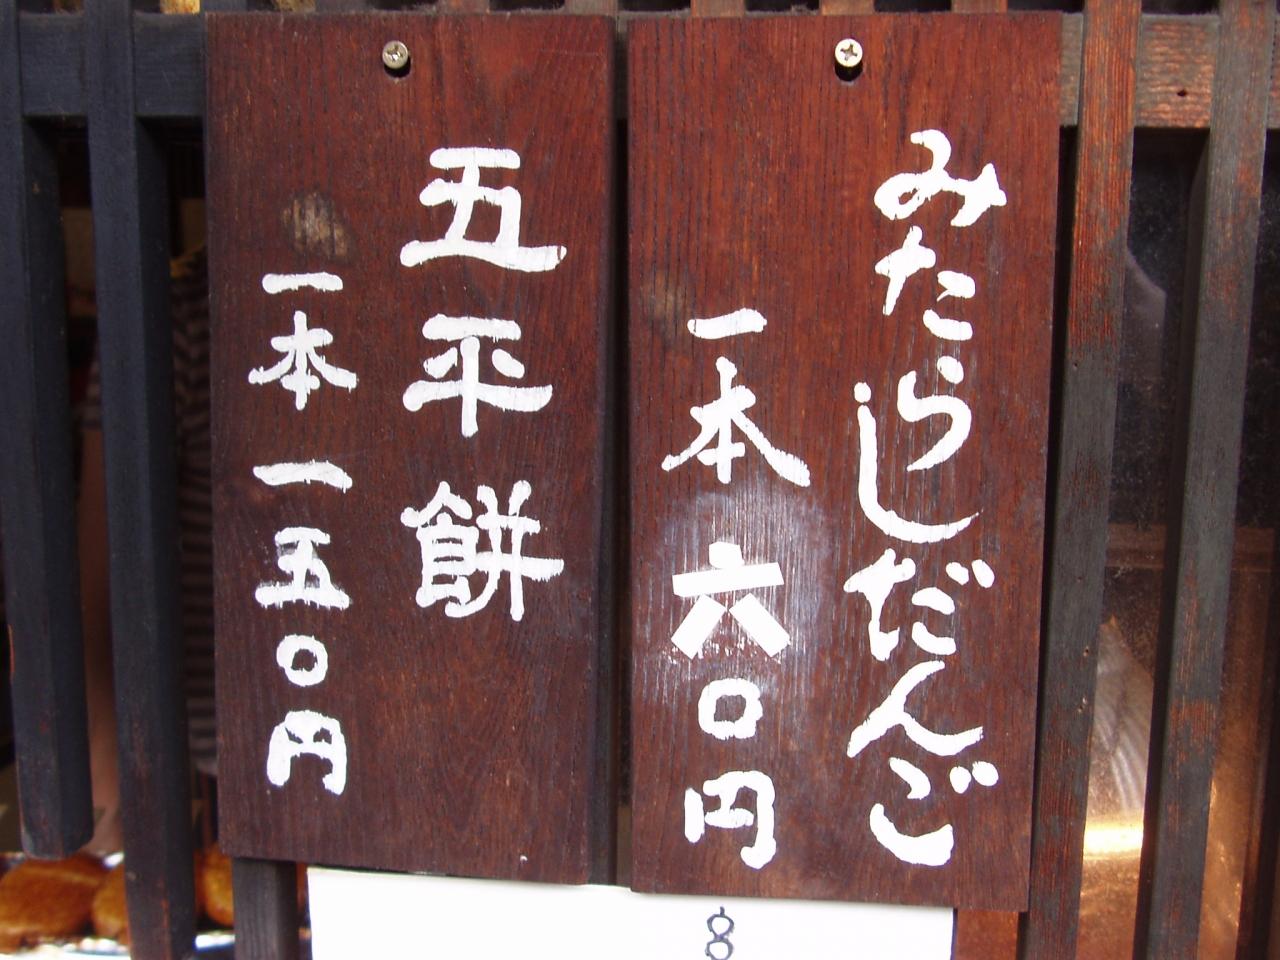 みたらしだんご
一本 六〇円
五平餅
一本 一五〇円
8